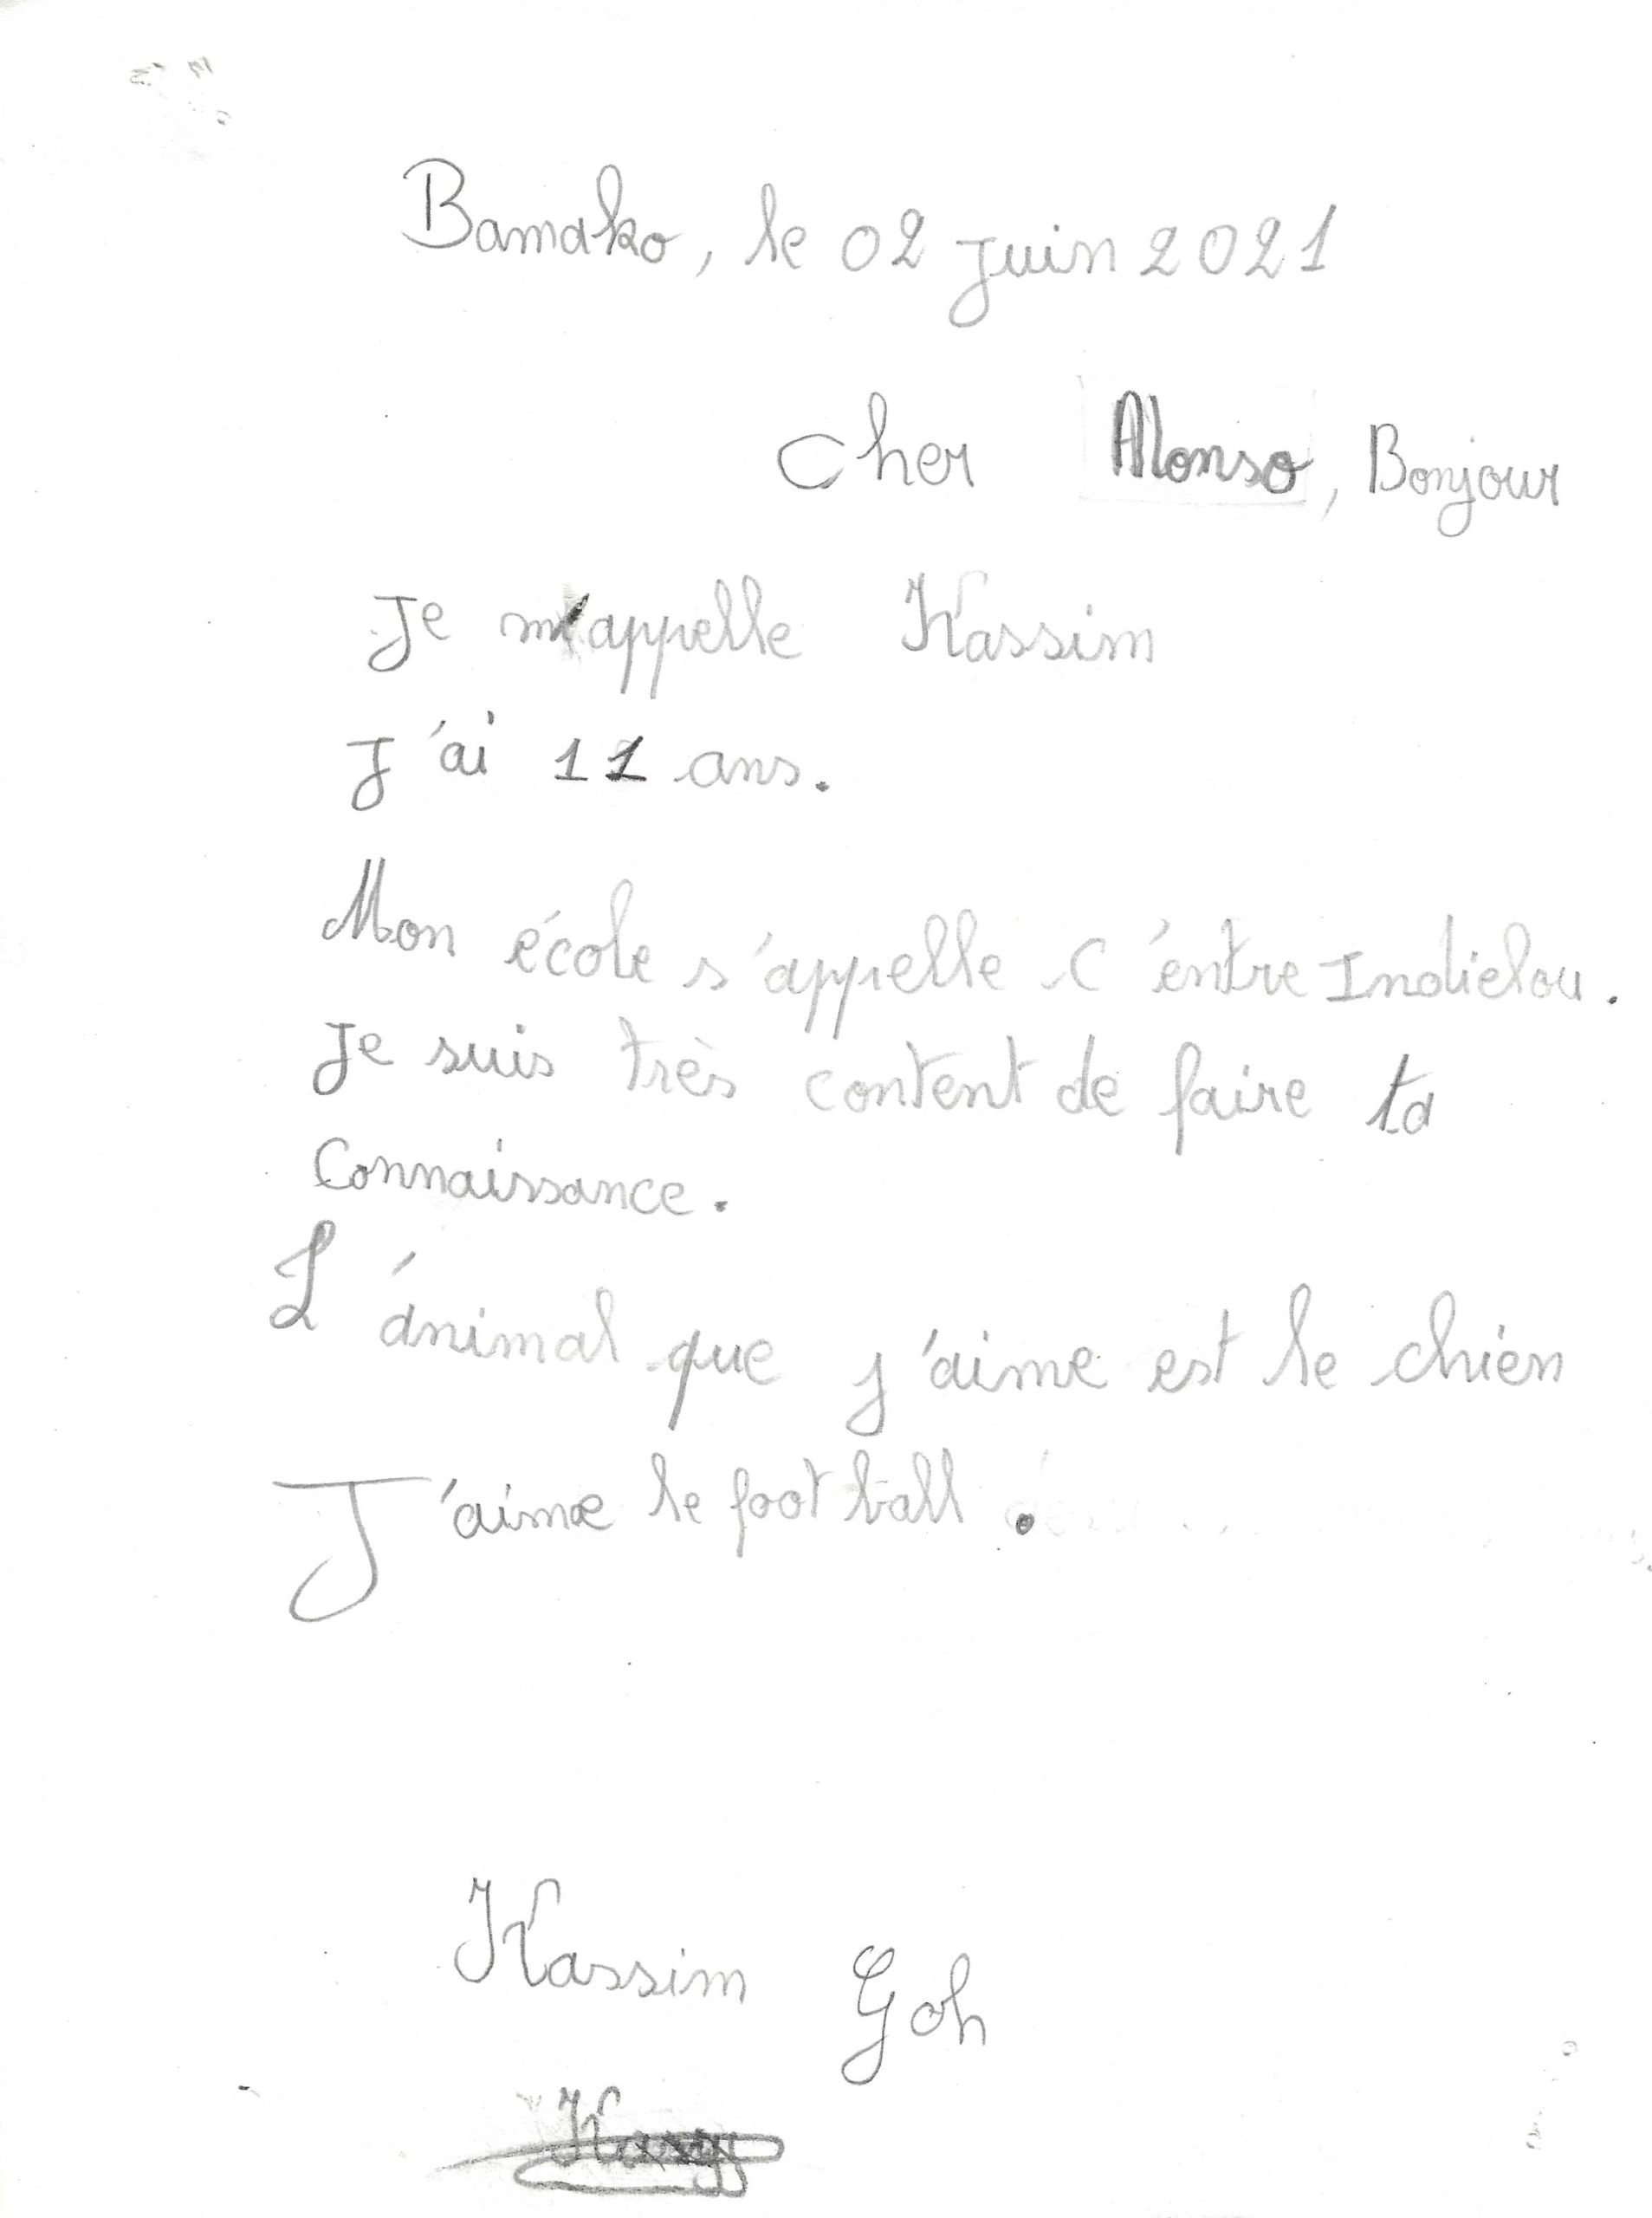 Bamako, le 02 juin 2021
cher Alonso, Bonjour
Je m'appelle Kassim
J'ai 11 ans.
Mon école s'appelle C'entre Indielou.
Je suis très content de faire ta
Connaissance.
L'animal que j'aime est le chien
J'aime le foot ball.
Kassim Goh